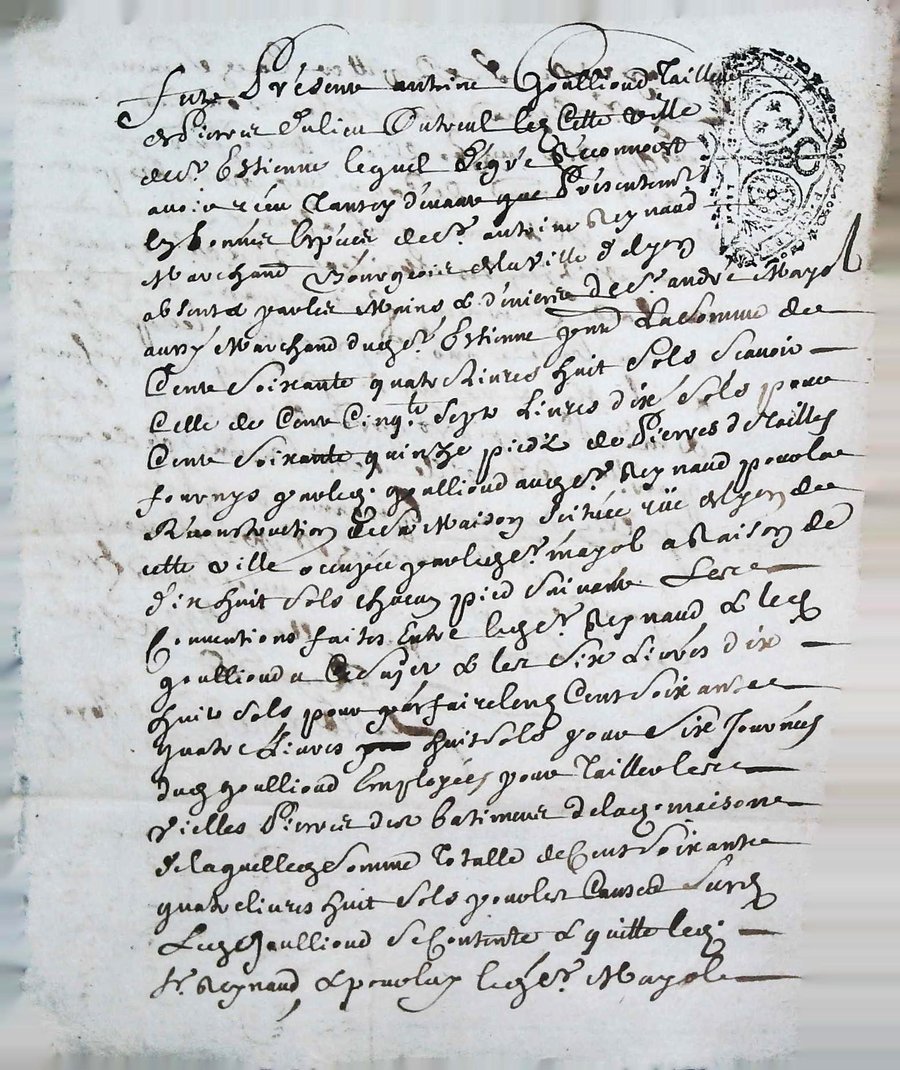 Fut Présent antoine Goulliond Tailleur
de Pierres du lieu lez Cette ville
de St. Estienne lequel dégré Reconnoist
avoir réeu Tant cy devant que Présentement
Es bonnes Espéces de Sr. antoine Reynaud
Marchand Bourgeois de la ville de Lyon
absent & par les Mains & déniers de Sr. andre Mayol
aussy Marchand dud. St. Estienne La Somme de
Cent Soixante quatre Livres huit Sols Scavoir
Celle de Cent Cinqte. Sept Livres dix Sols pour
Cent Soixante quinze piedz de Pierres de Tailles
fournys par led. goulliond aud. Sr. Reynaud pour la
Réconstruction de Sa Maison Scituée rüe de Lyon de
cette ville occupée par led. Sr. mayol a Raison de
dix huit Sols chacun pied Suivant Les
Conventions faites Entre led. Sr. Reynaud & led.
goulliond a Ce Sujet & les Six Livres dix
huit Sols pour parfaire lesd. Cent Soixante
quatre Livres huit Sols pour Six Journées
dud. goulliond Employées pour Tailler les
vielles Pierres des batimens de lad. maison
de laquelle Somme Totalle de Cent Soixante
quatre livres huit Sols pour les Causes Susd.
Led. Goulliond Se Contente & quitte led.
Sr. Reynaud & pour luy led. Sr. Mayol